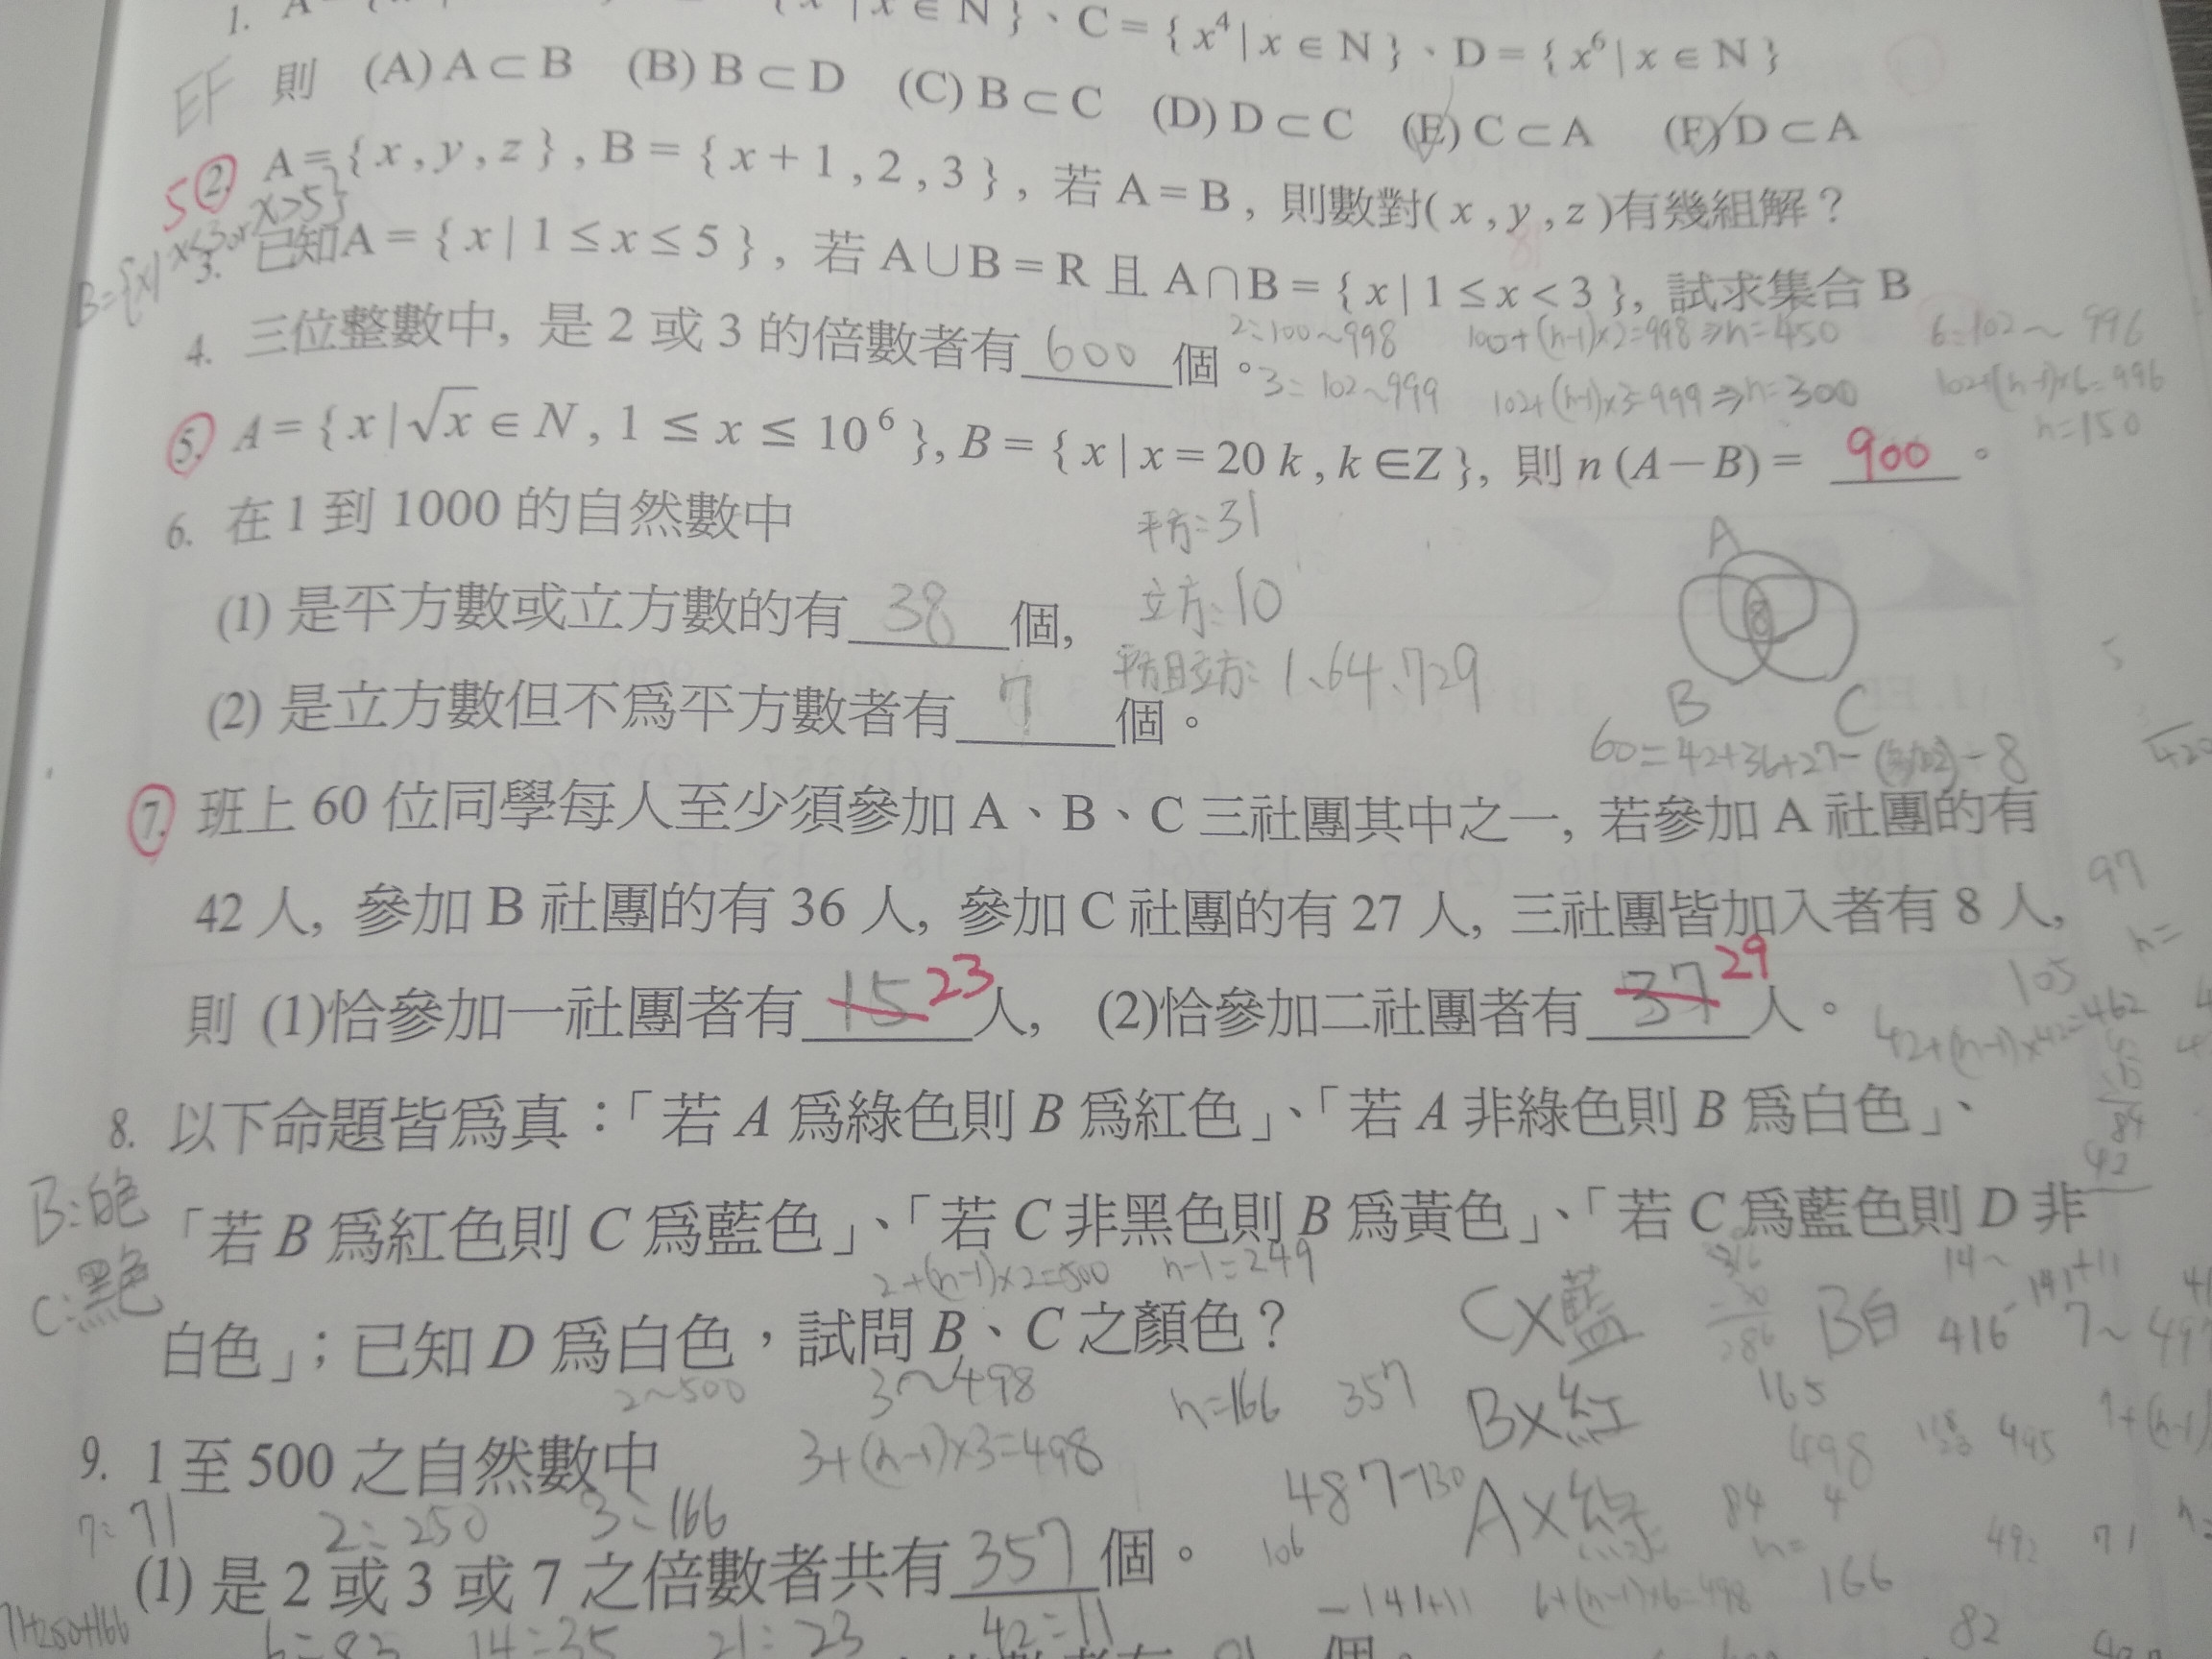 1.
x ∈ N }、C = { x⁴ | x ∈ N }、D = { x⁶ | x ∈ N }
EF 則 (A) A ⊂ B (B) B ⊂ D (C) B ⊂ C (D) D ⊂ C (E) C ⊂ A (F) D ⊂ A
5 2. A = { x , y , z } , B = { x + 1 , 2 , 3 } , 若 A = B , 則數對( x , y , z )有幾組解？
B={x| x<3 or x>5}
3. 已知A = { x | 1 ≤ x ≤ 5 } , 若 A∪B = R 且 A∩B = { x | 1 ≤ x < 3 }, 試求集合 B
4. 三位整數中, 是 2 或 3 的倍數者有 600 個。
2=100~998 100+(n-1)×2=998⇒n=450 6=102~996
3=102~999 102+(n-1)×3=999⇒n=300 102+(n-1)×6=996
n=150
5. A = { x | √x ∈ N , 1 ≤ x ≤ 10⁶ }, B = { x | x = 20 k , k ∈Z }, 則 n (A－B) = 900 。
6. 在 1 到 1000 的自然數中
平方=31
A
(1) 是平方數或立方數的有 38 個,
立方:10
8
(2) 是立方數但不為平方數者有 7 個。
平方且立方: 1、64、729
B C
60=42+36+27-
-8
7. 班上 60 位同學每人至少須參加 A、B、C 三社團其中之一, 若參加 A 社團的有
42 人, 參加 B 社團的有 36 人, 參加 C 社團的有 27 人, 三社團皆加入者有 8 人,
97
n=
則 (1)恰參加一社團者有 15 23 人, (2)恰參加二社團者有 37 29 人。
105
42+(n-1)×42=462
8. 以下命題皆為真：「若 A 為綠色則 B 為紅色」、「若 A 非綠色則 B 為白色」、
84
42
B:白色
「若 B 為紅色則 C 為藍色」、「若 C 非黑色則 B 為黃色」、「若 C 為藍色則 D 非
C:黑色
2+(n-1)×2=500 n-1=249
白色」；已知 D 為白色，試問 B、C 之顏色？
C×藍 286 B白 14~ 416 -141+11 7~
2~500 3~498 n=166 357 B×紅 165
9. 1 至 500 之自然數中
3+(n-1)×3=498 498 495
7=71 2=250 3=166 487-130 A×綠 84 4
(1) 是 2 或 3 或 7 之倍數者共有 357 個。
106 492 71
71+250+166 6=83 14=35 21=23 42=11
-141+11 6+(n-1)×6=498 166
82